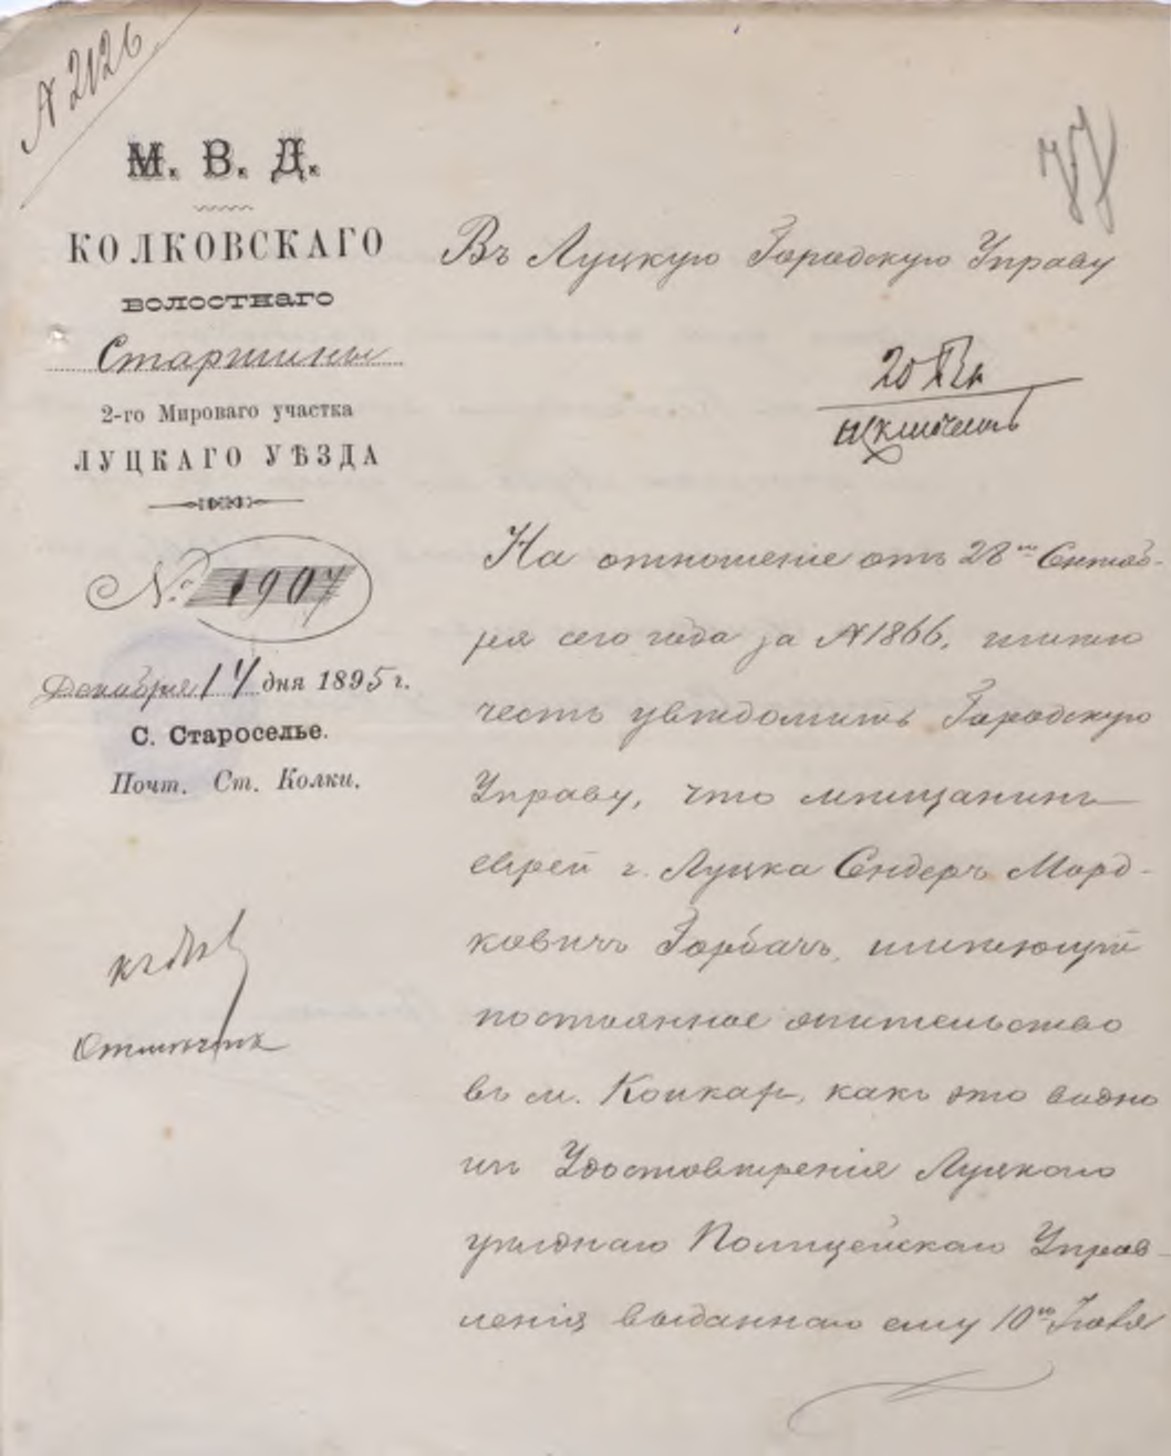 N 2126
М. В. Д.
КОЛКОВСКАГО
ВОЛОСТНАГО
Старшины
2-го Мироваго участка
ЛУЦКАГО УѢЗДА
№ 1907
Декабря 14 дня 1895 г.
С. Староселье.
Почт. Ст. Колки.
къ
Отмѣтить
77
Въ Луцкую Городскую Управу
20
На отношеніе отъ 28го Сентяб-
ря сего года за N 1866, имѣю
честь увѣдомить Городскую
Управу, что мѣщанинъ
еврей г. Луцка Сендеръ Морд-
ковичъ Горбачъ, имѣющій
постоянное жительство
въ м. Колкахъ, какъ это видно
изъ Удостовѣренія Луцкаго
уѣзднаго Полицейскаго Управ-
ленія выданнаго ему 10го